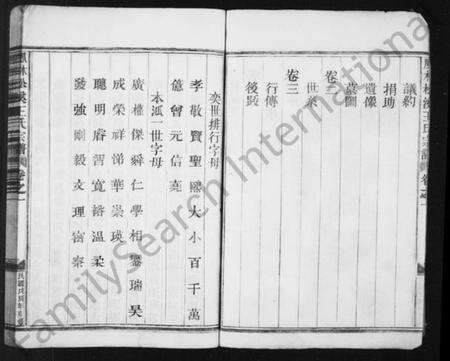 議約
捐助
遺像
墓圖
卷二
世系
卷三
行傳
後跋
奕世排行字母
孝敬賢聖熙大小百千萬
億曾元信莫
本派一世字母
廣權俊舜仁學相鑾瑞昊
成榮祥悌華崇瑛
聰明睿濬寬裕溫柔
發強剛毅文理密察
FamilySearch International